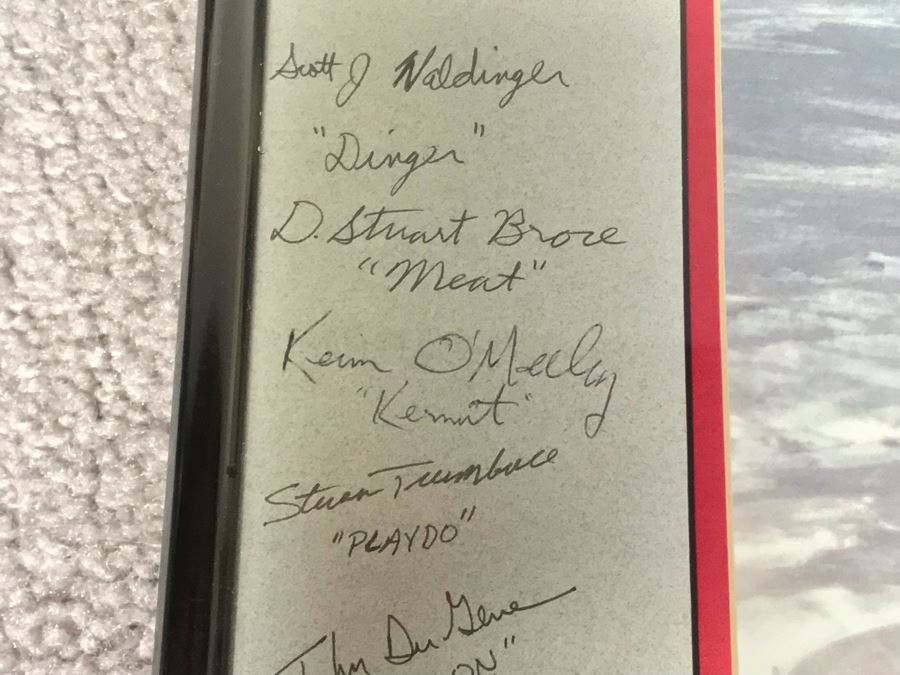 Scott J Waldinger
"Dinger"
D. Stuart Broce
"Meat"
Kevin O'Meel
"Kermit"
Stuart
"PLAYDO"
John Du Gene
ON"